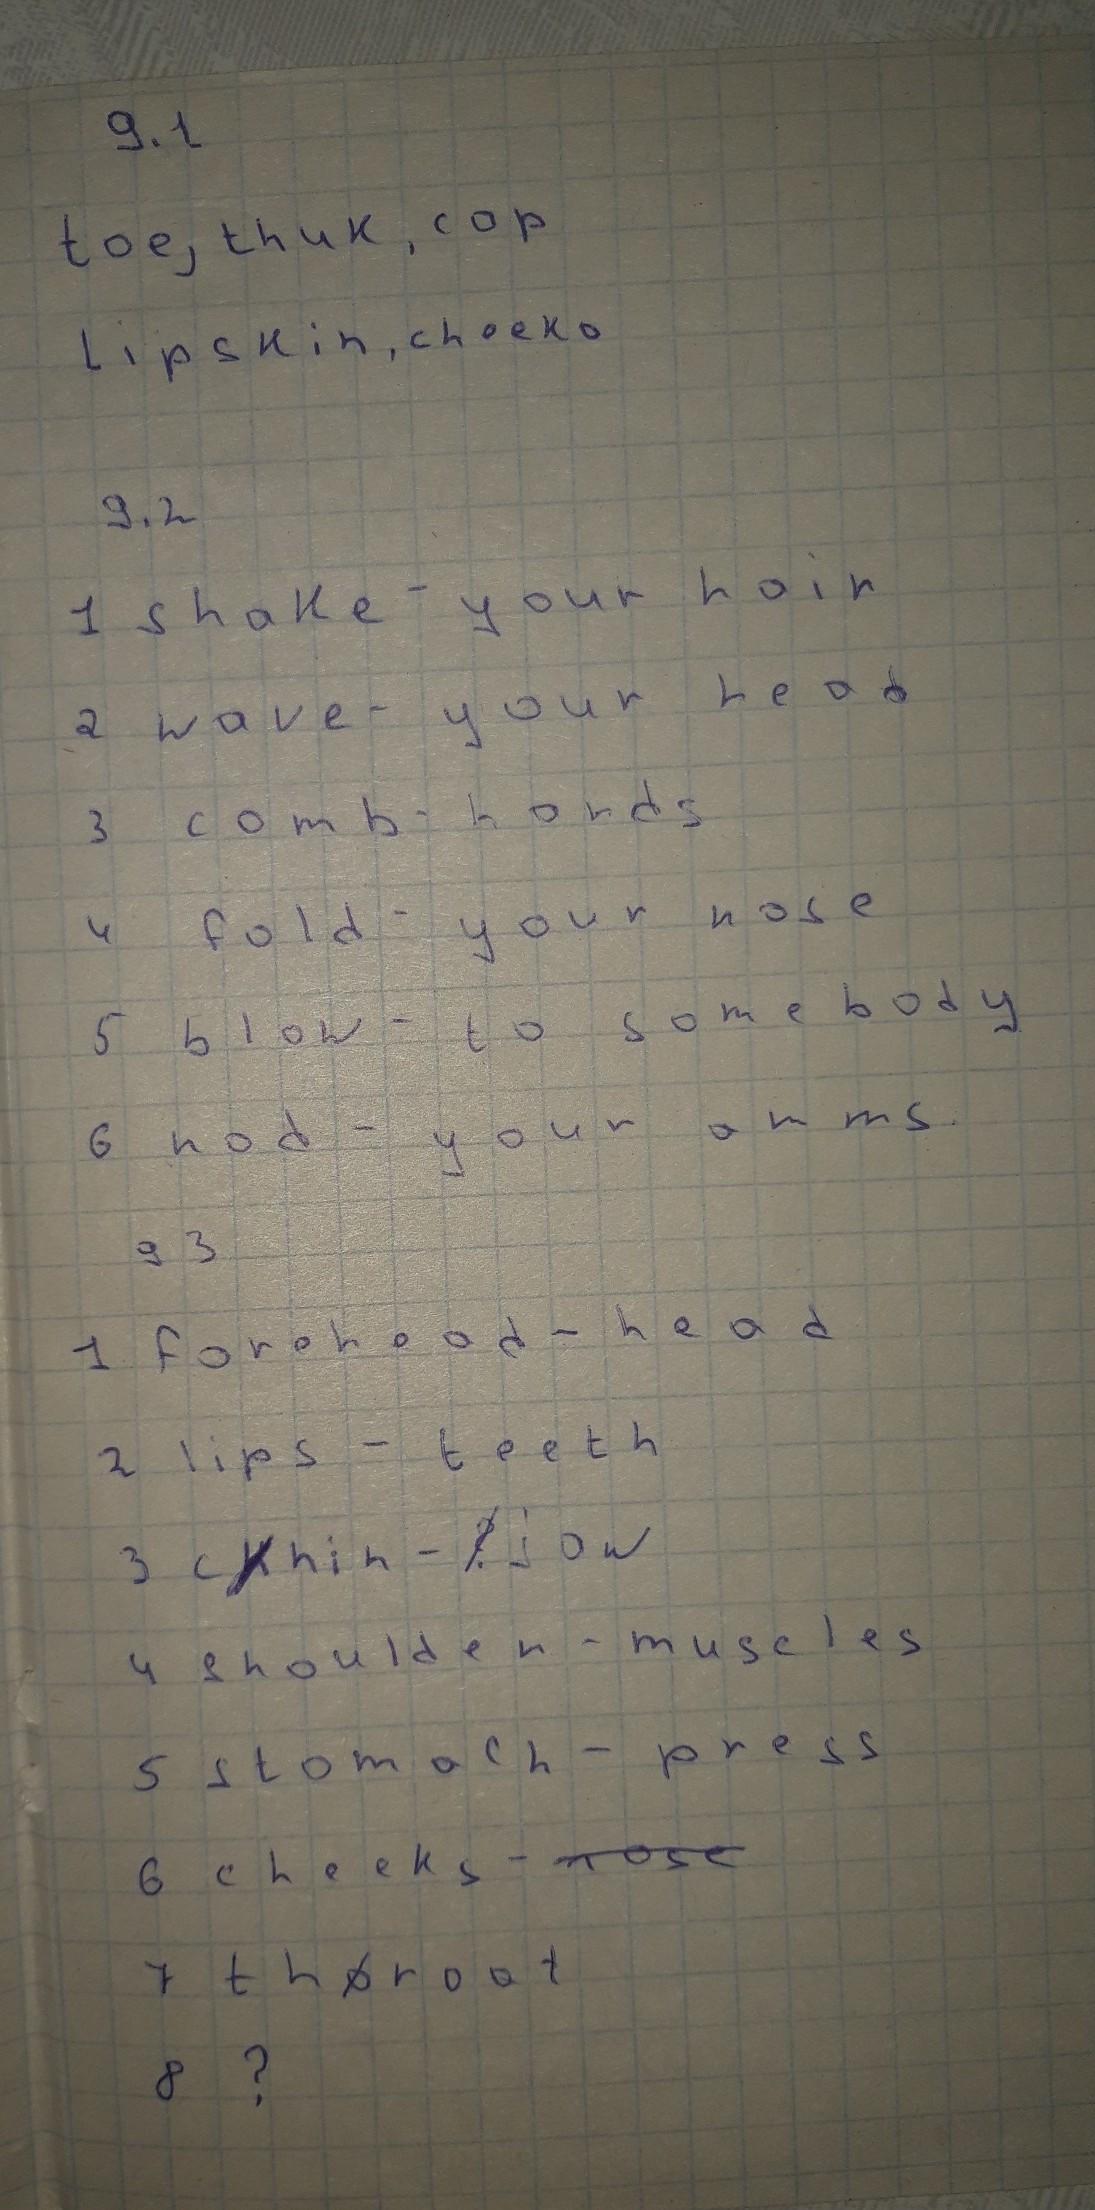 9.1
toe, thuk, cop
lipskin, cheeko
9.2
1 shake - your hair
2 wave - your head
3 comb - hands
4 fold - your nose
5 blow - to somebody
6 nod - your arms.
93
1 forehead - head
2 lips - teeth
3 chin - jow
4 shoulder - muscles
5 stomach - press
6 cheeks - nose
7 throat
8 ?